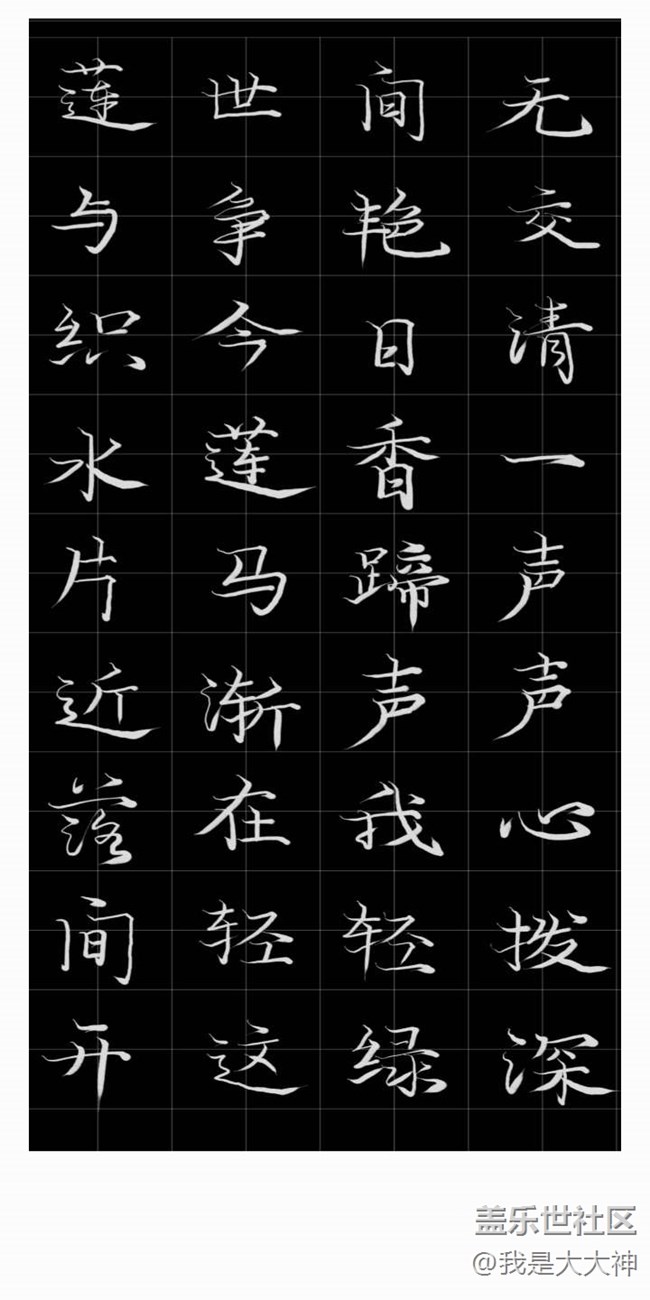 莲世间无
与争艳交
织今日清
水莲香一
片马蹄声
近渐声声
落在我心
间轻轻拨
开这绿深
盖乐世社区
@我是大大神